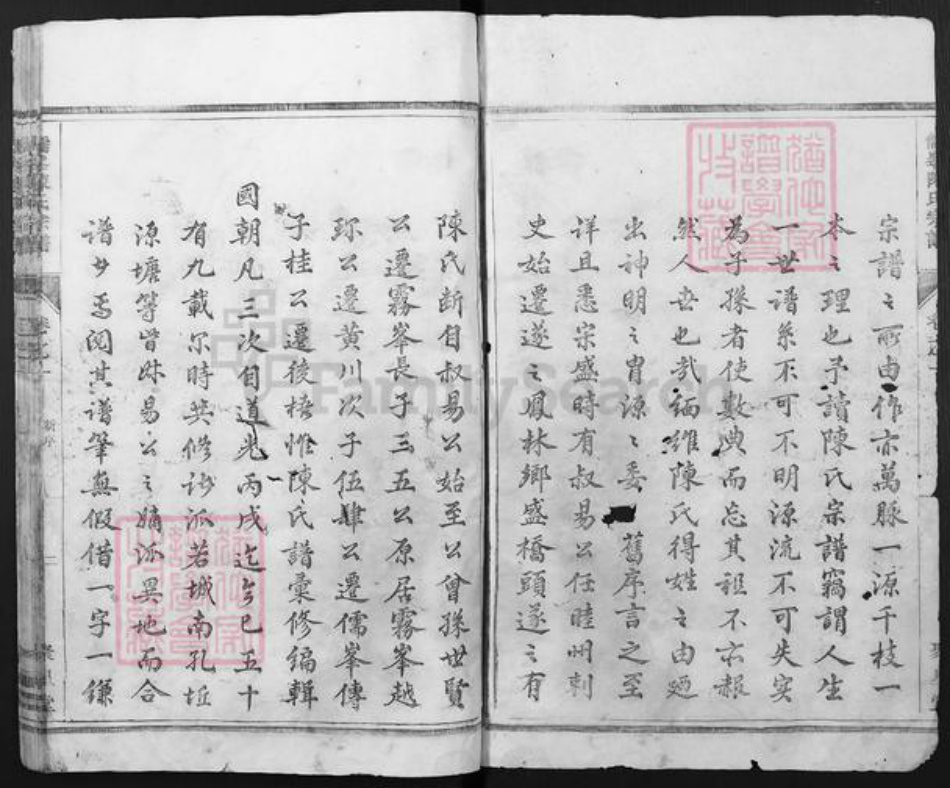 宗譜之所由作亦萬脉一源千枝一
本之理也予讀陳氏宗譜竊謂人生
一世譜系不可不明源流不可失实
為子孫者使數典而忘其祖不亦赧
然人世也哉緬維陳氏得姓之由廼
出神明之胄源之委 舊序言之至
詳且悉宗盛時有叔易公任睦州刺
史始遷遂之鳳林鄉盛橋頭遂之有
陳氏断自叔易公始至公曾孫世賢
公遷霧峯長子三五公原居霧峯越
珎公遷黄川次子伍肆公遷儒峯傳
子桂公遷後梧惟陳氏譜彙修編輯
國朝凡三次自道光丙戌迄今已五十
有九載尔時英修談派若城南孔坵
源塘等皆妹易公之嫡派異地而合
譜廿焉閲其譜筆無假借一字一鎌
FamilySearch